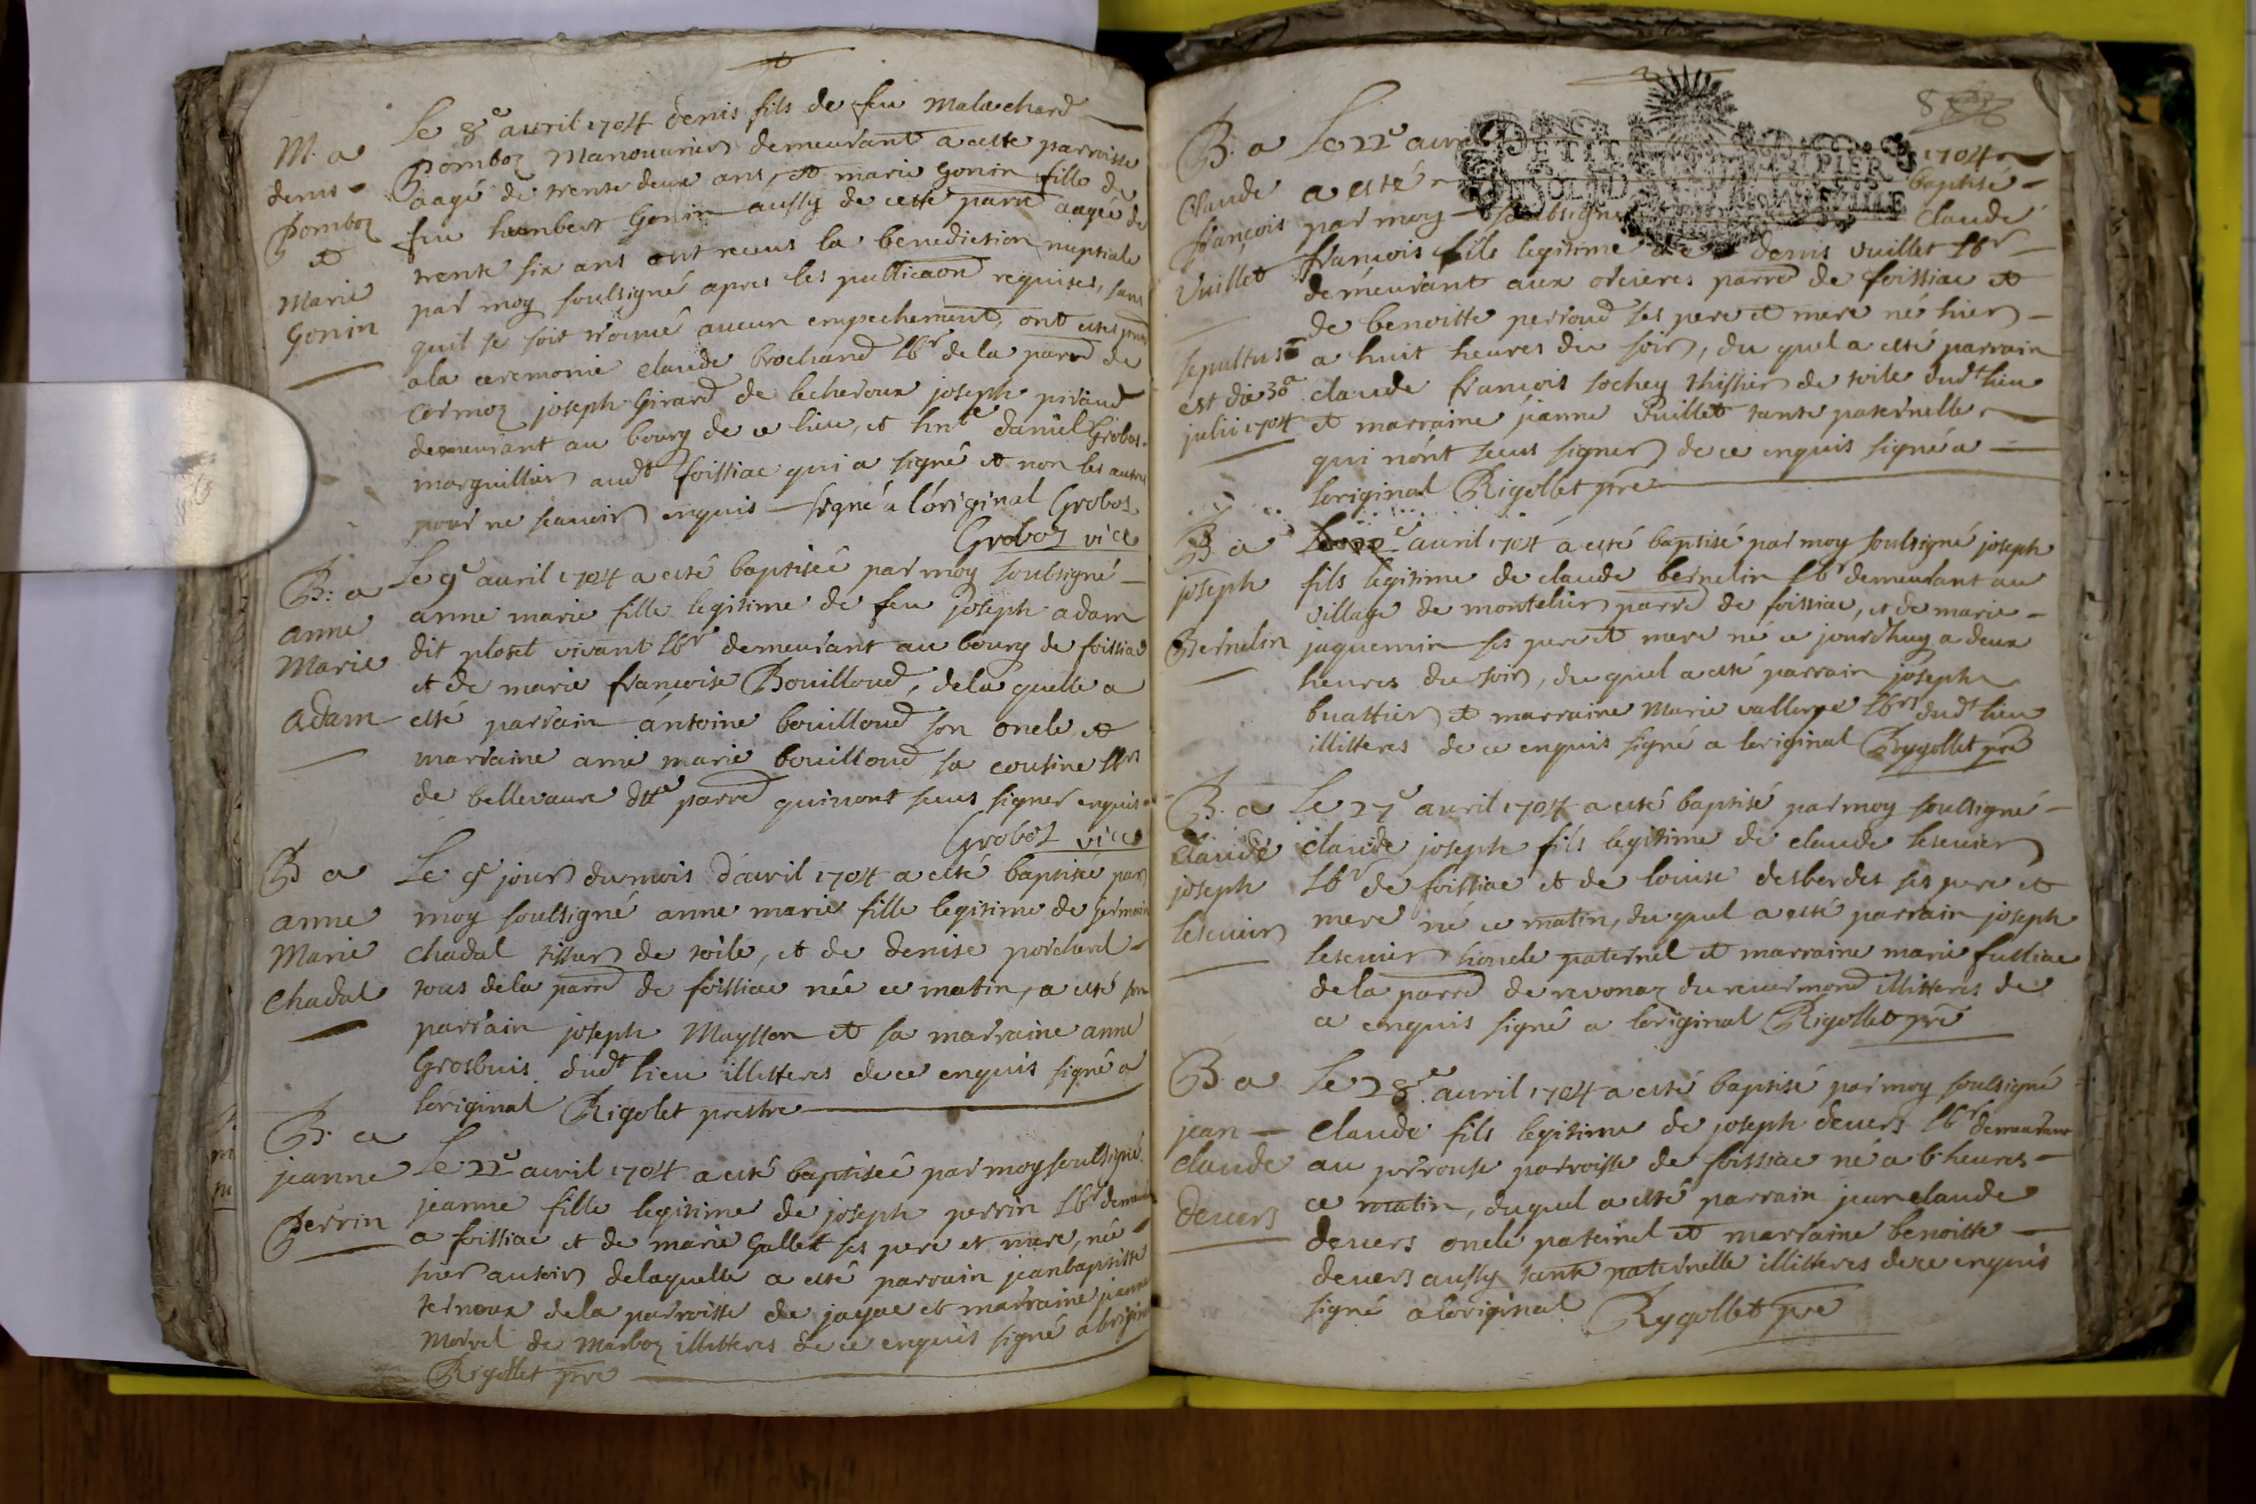 M. a
denis
Pomboz
et
Marie
Gonin
Le 8e auril 1704 denis fils de feu Malachard
Pomboz Manouurier demeurant a cette parroisse
aagé de trente deux ans, et marie Gonin fille de
feu humbert Gonin aussy de cette parre aagée de
trente six ans ont receus la benediction nuptiale
par moy soubsigné apres les publicaon requises, sans
quil se soit trouué aucun empechement, ont estes pnts
a la ceremonie claude brochand Lbr de la parre de
Cormoz joseph Girard de lecheroux joseph piraud
demeurant au bourg de ce lieu, et hnle daniel Grobos
marguillier audt foissiac qui a signé et non les autres
pour ne scauoir enquis signé a l'original Grobos
Grobos vicc
B. a
anne
Marie
adam
Le 9e auril 1704 a esté baptiseé par moy soubsigné
anne marie fille legitime de feu joseph adam
dit ploset viuant Lbr demeurant au bourg de foissiac
et de marie francoise Bouilloud, de la quelle a
esté parrain antoine bouilloud son oncle et
marraine anne marie bouilloud sa cousine Lbrs
de belleuaure dtte parre qui nont sceus signer enquis
Grobos vicc
B a
anne
Marie
Chadal
Le 9e jour du mois d'auril 1704 a esté baptisée par
moy soubsigné anne marie fille legitime de germain
Chadal tissier de toile, et de denise porcherel
tous de la parre de foissiac née ce matin, a esté son
parrain joseph Maysson et sa marraine anne
Grosbuis dudt lieu illitteres de ce enquis signé a
l'original Rigolet prestre
B. a
jeanne
Perrin
Le 22e auril 1704 a esté baptiseé par moy soubsigné
jeanne fille legitime de joseph perrin Lbr demeurant
a foissiac et de marie Gallet ses pere et mere, née
hier au soir de laquelle a esté parrain jean baptiste
ternoux de la parroisse de jayac et marraine jeanne
Morel de Marboz illitteres de ce enquis signé a loriginal
Rigollet pre
8
B. a
Claude
françois
Vuillet
sepultus
est die 30a
julii 1704
Le 22e auril 1704
PETIT PAPIER
a esté baptisé
par moy soubsigné Claude
francois fils legitime de denis vuillet Lbr
demeurant aux orcieres parre de foissiac et
de benoitte perroud ses pere et mere né hier
a huit heures du soir, du quel a esté parrain
claude francois sochey thissier de toile dudt lieu
et marraine jeanne Vuillet tante paternelle
qui nont sceus signer de ce enquis signé a
loriginal Rigollet pre
B a
joseph
Bernelin
auril 1704 a esté baptisé par moy soubsigné joseph
fils legitime de claude bernelin Lbr demeurant au
village de montelier parre de foissiac, et de marie
jaquemin ses pere et mere né ce jourdhuy a deux
heures du soir, du quel a esté parrain joseph
buattier et marraine Marie Lbrs dudt lieu
illitteres de ce enquis signé a loriginal Rygollet pre
B. a
Claude
joseph
lescuier
Le 27e auril 1704 a esté baptisé par moy soubsigné
Claude joseph fils legitime de claude lescuier
Lbr de foissiac et de louise desbordes ses pere et
mere né ce matin, du quel a esté parrain joseph
lescuier honcle paternel et marraine marie fussiac
de la parre de reuonaz du reuermond illitteres de
ce enquis signé a loriginal Rigollet pre
B. a
jean
claude
deuers
Le 28e auril 1704 a esté baptisé par moy soubsigné
Claude fils legitime de joseph deuers Lbr demeurant
au perrouse parroisse de foissiac né a 6 heures
ce matin, duquel a esté parrain jean claude
deuers oncle paternel et marraine benoitte
deuers aussy tante paternelle illitteres de ce enquis
signé a loriginal Rygollet pre